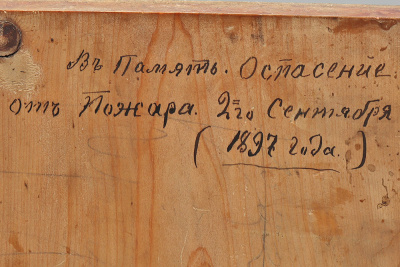 Въ Память. Оспасение
отъ Пожара. 2го Сентября
( 1897 года. )